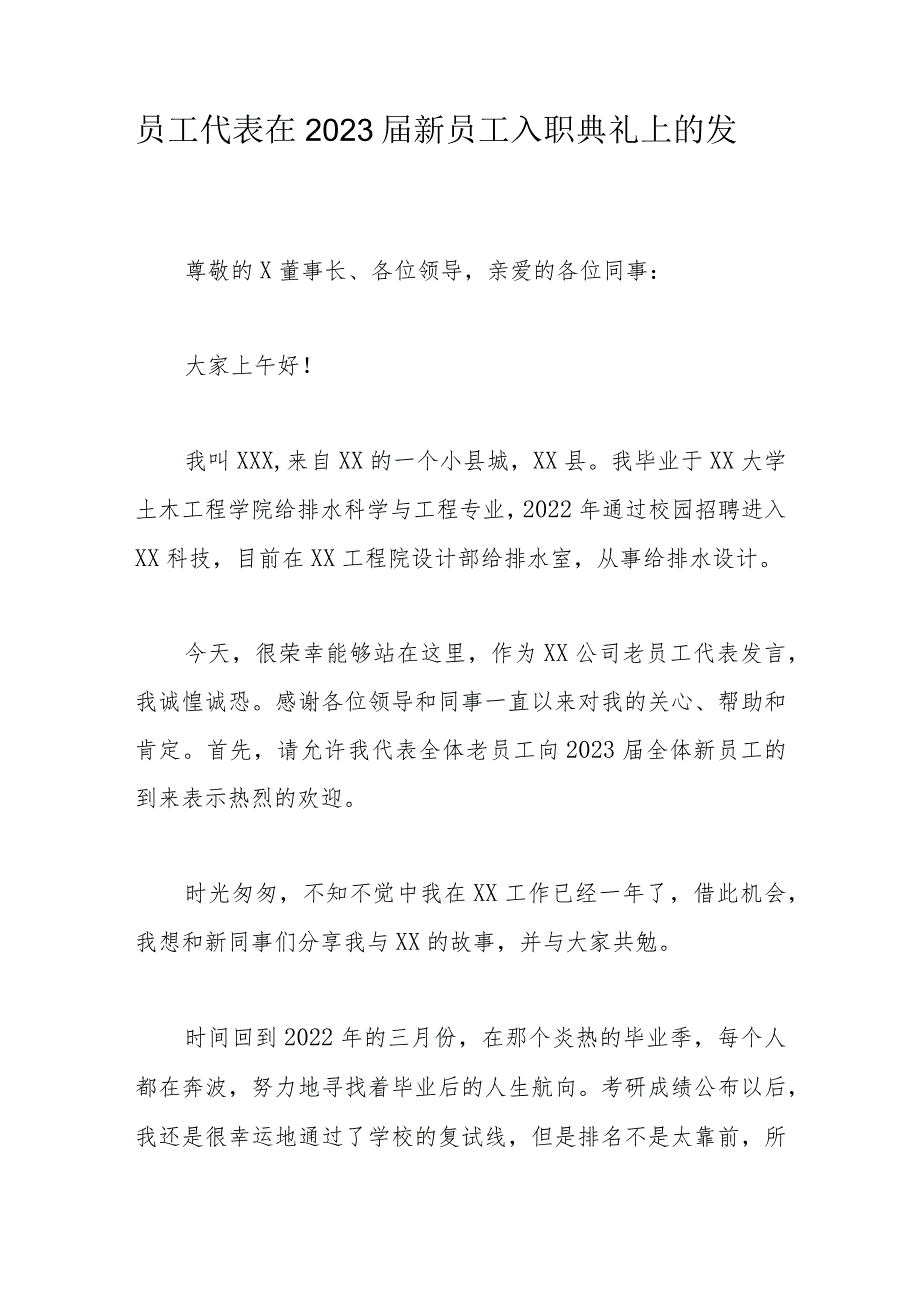 员工代表在 2023 届新员工入职典礼上的发
尊敬的 X 董事长、各位领导，亲爱的各位同事：
大家上午好！
我叫 XXX,来自 XX 的一个小县城，XX 县。我毕业于 XX 大学
土木工程学院给排水科学与工程专业，2022 年通过校园招聘进入
XX 科技，目前在 XX 工程院设计部给排水室，从事给排水设计。
今天，很荣幸能够站在这里，作为 XX 公司老员工代表发言，
我诚惶诚恐。感谢各位领导和同事一直以来对我的关心、帮助和
肯定。首先，请允许我代表全体老员工向 2023 届全体新员工的
到来表示热烈的欢迎。
时光匆匆，不知不觉中我在 XX 工作已经一年了，借此机会，
我想和新同事们分享我与 XX 的故事，并与大家共勉。
时间回到 2022 年的三月份，在那个炎热的毕业季，每个人
都在奔波，努力地寻找着毕业后的人生航向。考研成绩公布以后，
我还是很幸运地通过了学校的复试线，但是排名不是太靠前，所